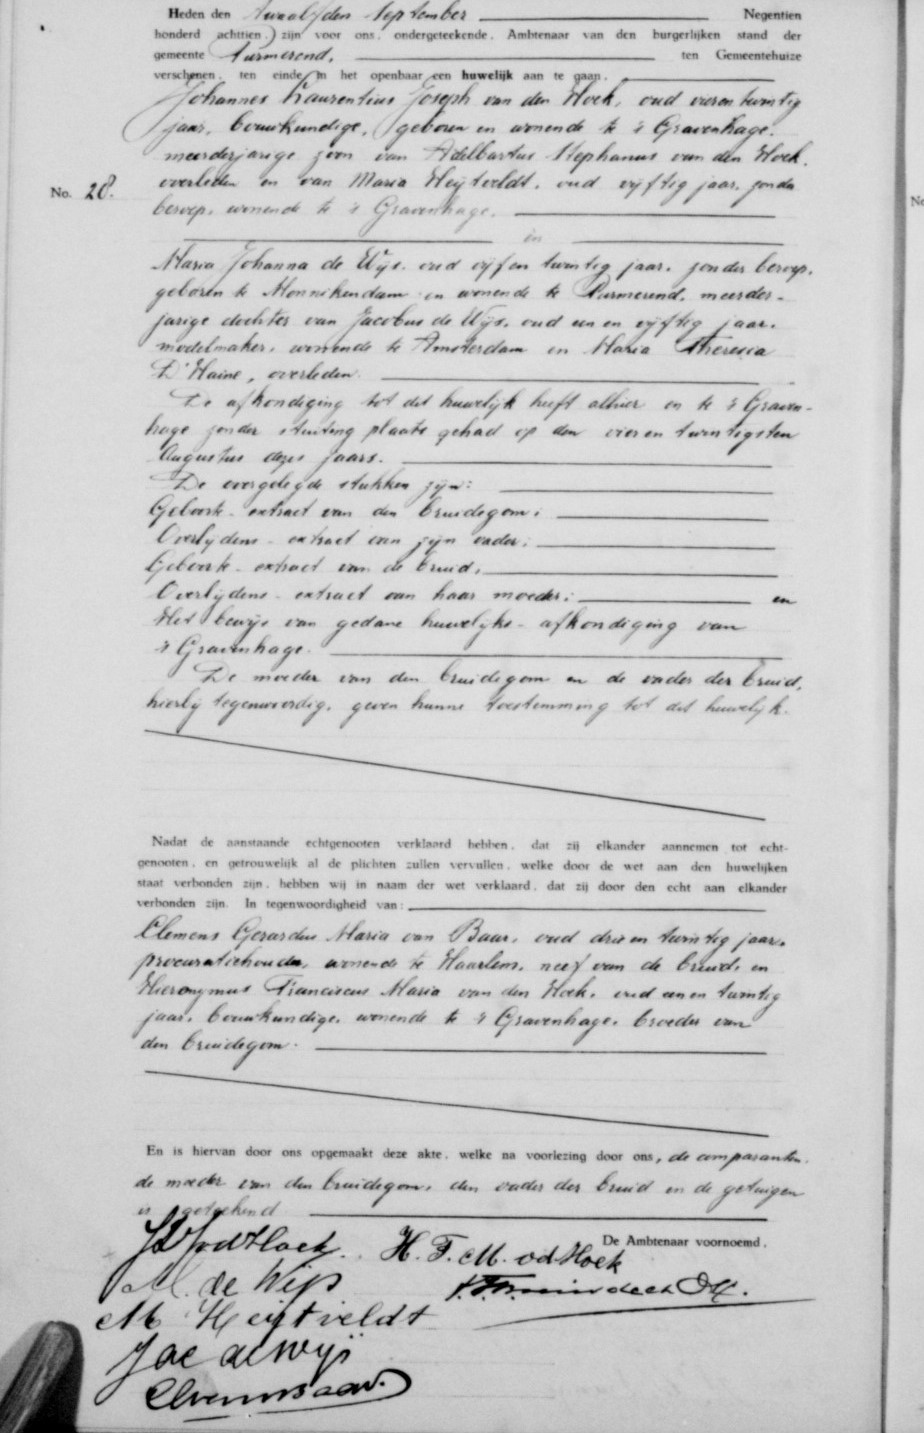 Heden den twaalfden September Negentien
honderd achttien, zijn voor ons, ondergeteekende, Ambtenaar van den burgerlijken stand der
gemeente Purmerend, ten Gemeentehuize
verschenen, ten einde in het openbaar een huwelijk aan te gaan,
Johannes Laurentius Joseph van den Hoek, oud vier en twintig
jaar, bouwkundige, geboren en wonende te 's Gravenhage,
meerderjarige zoon van Adelbartus Stephanus van den Hoek,
overleden en van Maria Heijtveldt, oud vijftig jaar, zonder
No. 28.
beroep, wonende te 's Gravenhage,
en
Maria Johanna de Wijs, oud vijf en twintig jaar, zonder beroep,
geboren te Monnikendam en wonende te Purmerend, meerder-
jarige dochter van Jacobus de Wijs, oud een en vijftig jaar,
modelmaker, wonende te Amsterdam en Maria Theresia
D'Haine, overleden.
De afkondiging tot dit huwelijk heeft alhier en te 's Graven-
hage zonder stuiting plaats gehad op den vier en twintigsten
Augustus dezes jaars.
De overgelegde stukken zijn:
Geboorte-extract van den bruidegom;
Overlijdens-extract van zijn vader;
Geboorte-extract van de bruid;
Overlijdens-extract van haar moeder; en
Het bewijs van gedane huwelijks-afkondiging van
's Gravenhage.
De moeder van den bruidegom en de vader der bruid,
hierbij tegenwoordig, geven hunne toestemming tot dit huwelijk.
Nadat de aanstaande echtgenooten verklaard hebben, dat zij elkander aannemen tot echt-
genooten, en getrouwelijk al de plichten zullen vervullen, welke door de wet aan den huwelijken
staat verbonden zijn, hebben wij in naam der wet verklaard, dat zij door den echt aan elkander
verbonden zijn. In tegenwoordigheid van:
Clemens Gerardus Maria van Baar, oud drie en twintig jaar,
procuratiehouder, wonende te Haarlem, neef van de bruid, en
Hieronymus Franciscus Maria van den Hoek, oud een en twintig
jaar, bouwkundige, wonende te 's Gravenhage, broeder van
den bruidegom.
En is hiervan door ons opgemaakt deze akte, welke na voorlezing door ons, de comparanten,
de moeder van den bruidegom, den vader der bruid en de getuigen
is geteekend
De Ambtenaar voornoemd,
vdHoek. H. F. M. vd Hoek
M. de Wijs
M Heijtveldt
Jac de Wijs